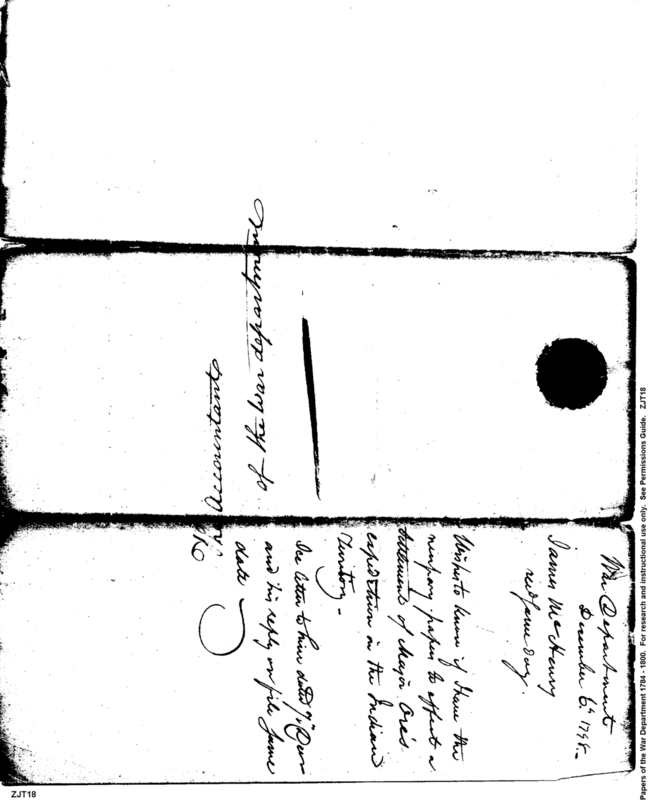 War Department
December 6th 1798.
James McHenry
recd same day.
Wishes to know if I have the
necessary papers to effect a
Settlement of Major Ore's
expedition in the Indian
Territory -
See letter to him dated 7th Decr
and his reply on file same
date
The Accountant
of the War department
Papers of the War Department 1784 - 1800. For research and instructional use only. See Permissions Guide. ZJT18
ZJT18